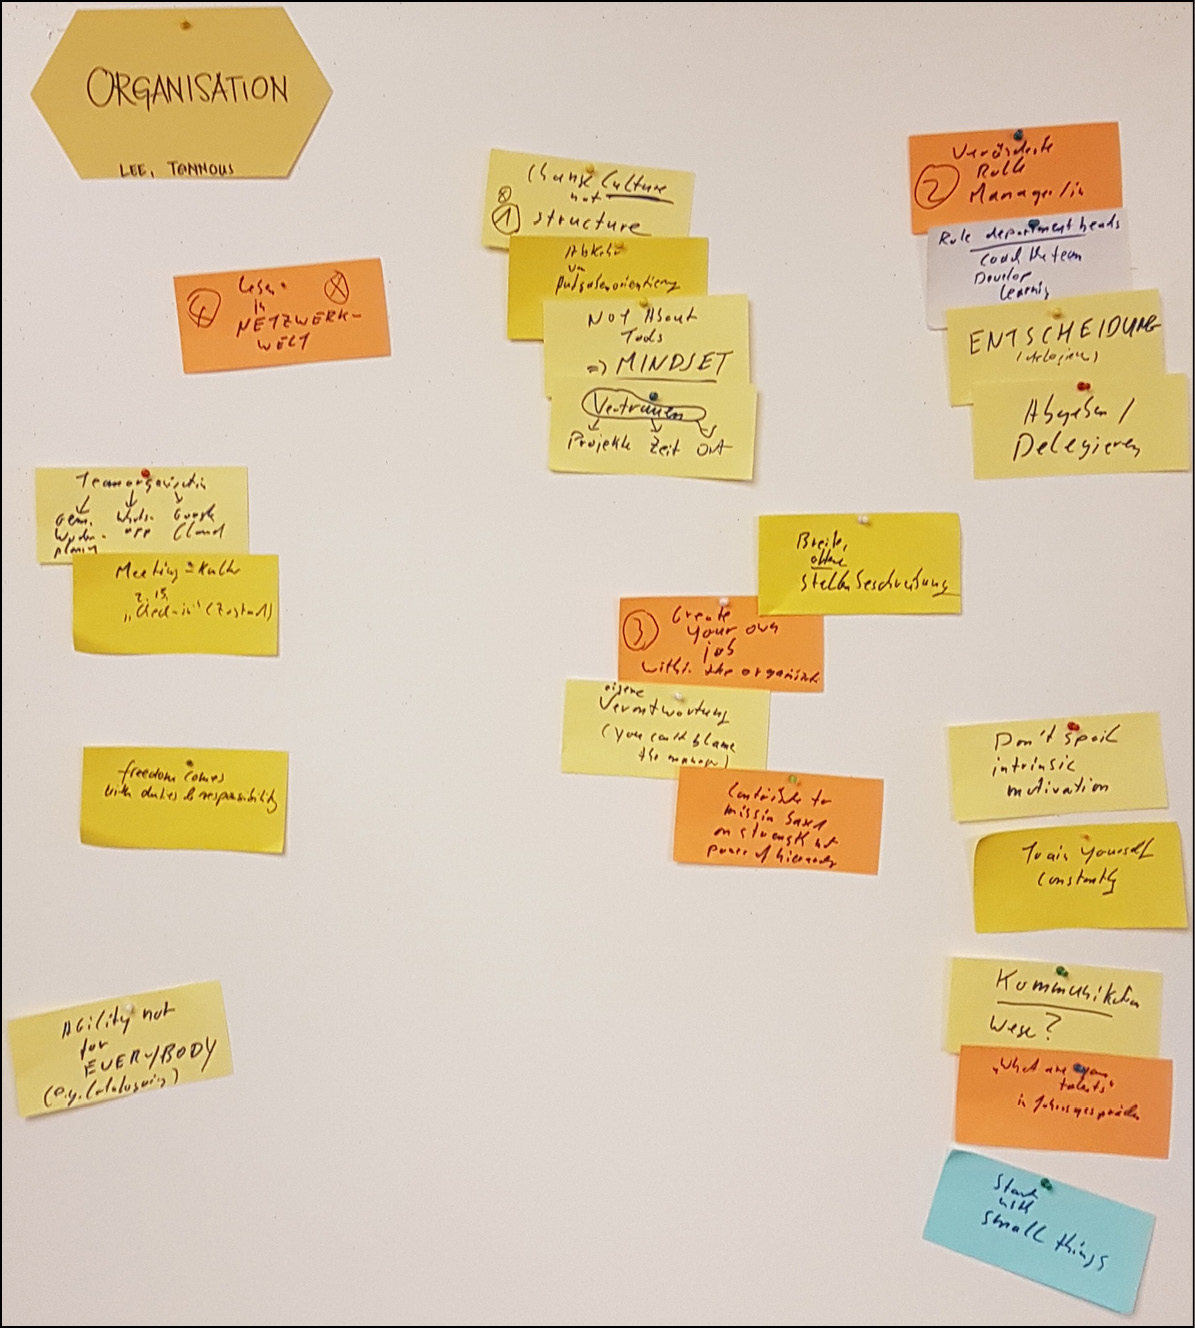 ORGANISATION
LEE, TANNOUS
Change Culture
not
1 structure
Abkehr
von
Aufgabenorientierung
Not About
Tools
=> MINDSET
Vertrauen
Projekte Zeit Ort
Veränderte
Rolle
2 Manager/in
Role department heads
coach the team
Develop
learning
ENTSCHEIDUNG
Abgeben /
Delegieren
4
in
NETZWERK-
WELT
Teamorganisation
Gem. Whats- Google
Wochen- app Cloud
planung
Meeting-Kultur
z.B.
„Check-in“ (Zustand)
Breite,
offene
Stellenbeschreibung
3 Create
your own
job
within the organisat.
eigene
Verantwortung
(you can't blame
the manager)
Contribute to
mission based
on strength not
power of hierarchy
freedom comes
with duties & responsibility
Don't spoil
intrinsic
motivation
Train yourself
constantly
Agility not
for
EVERYBODY
(e.g. Cataloguing)
Kommunikation
Wege?
„What are your
talents“
in Jahresgespräche
Start
with
small things